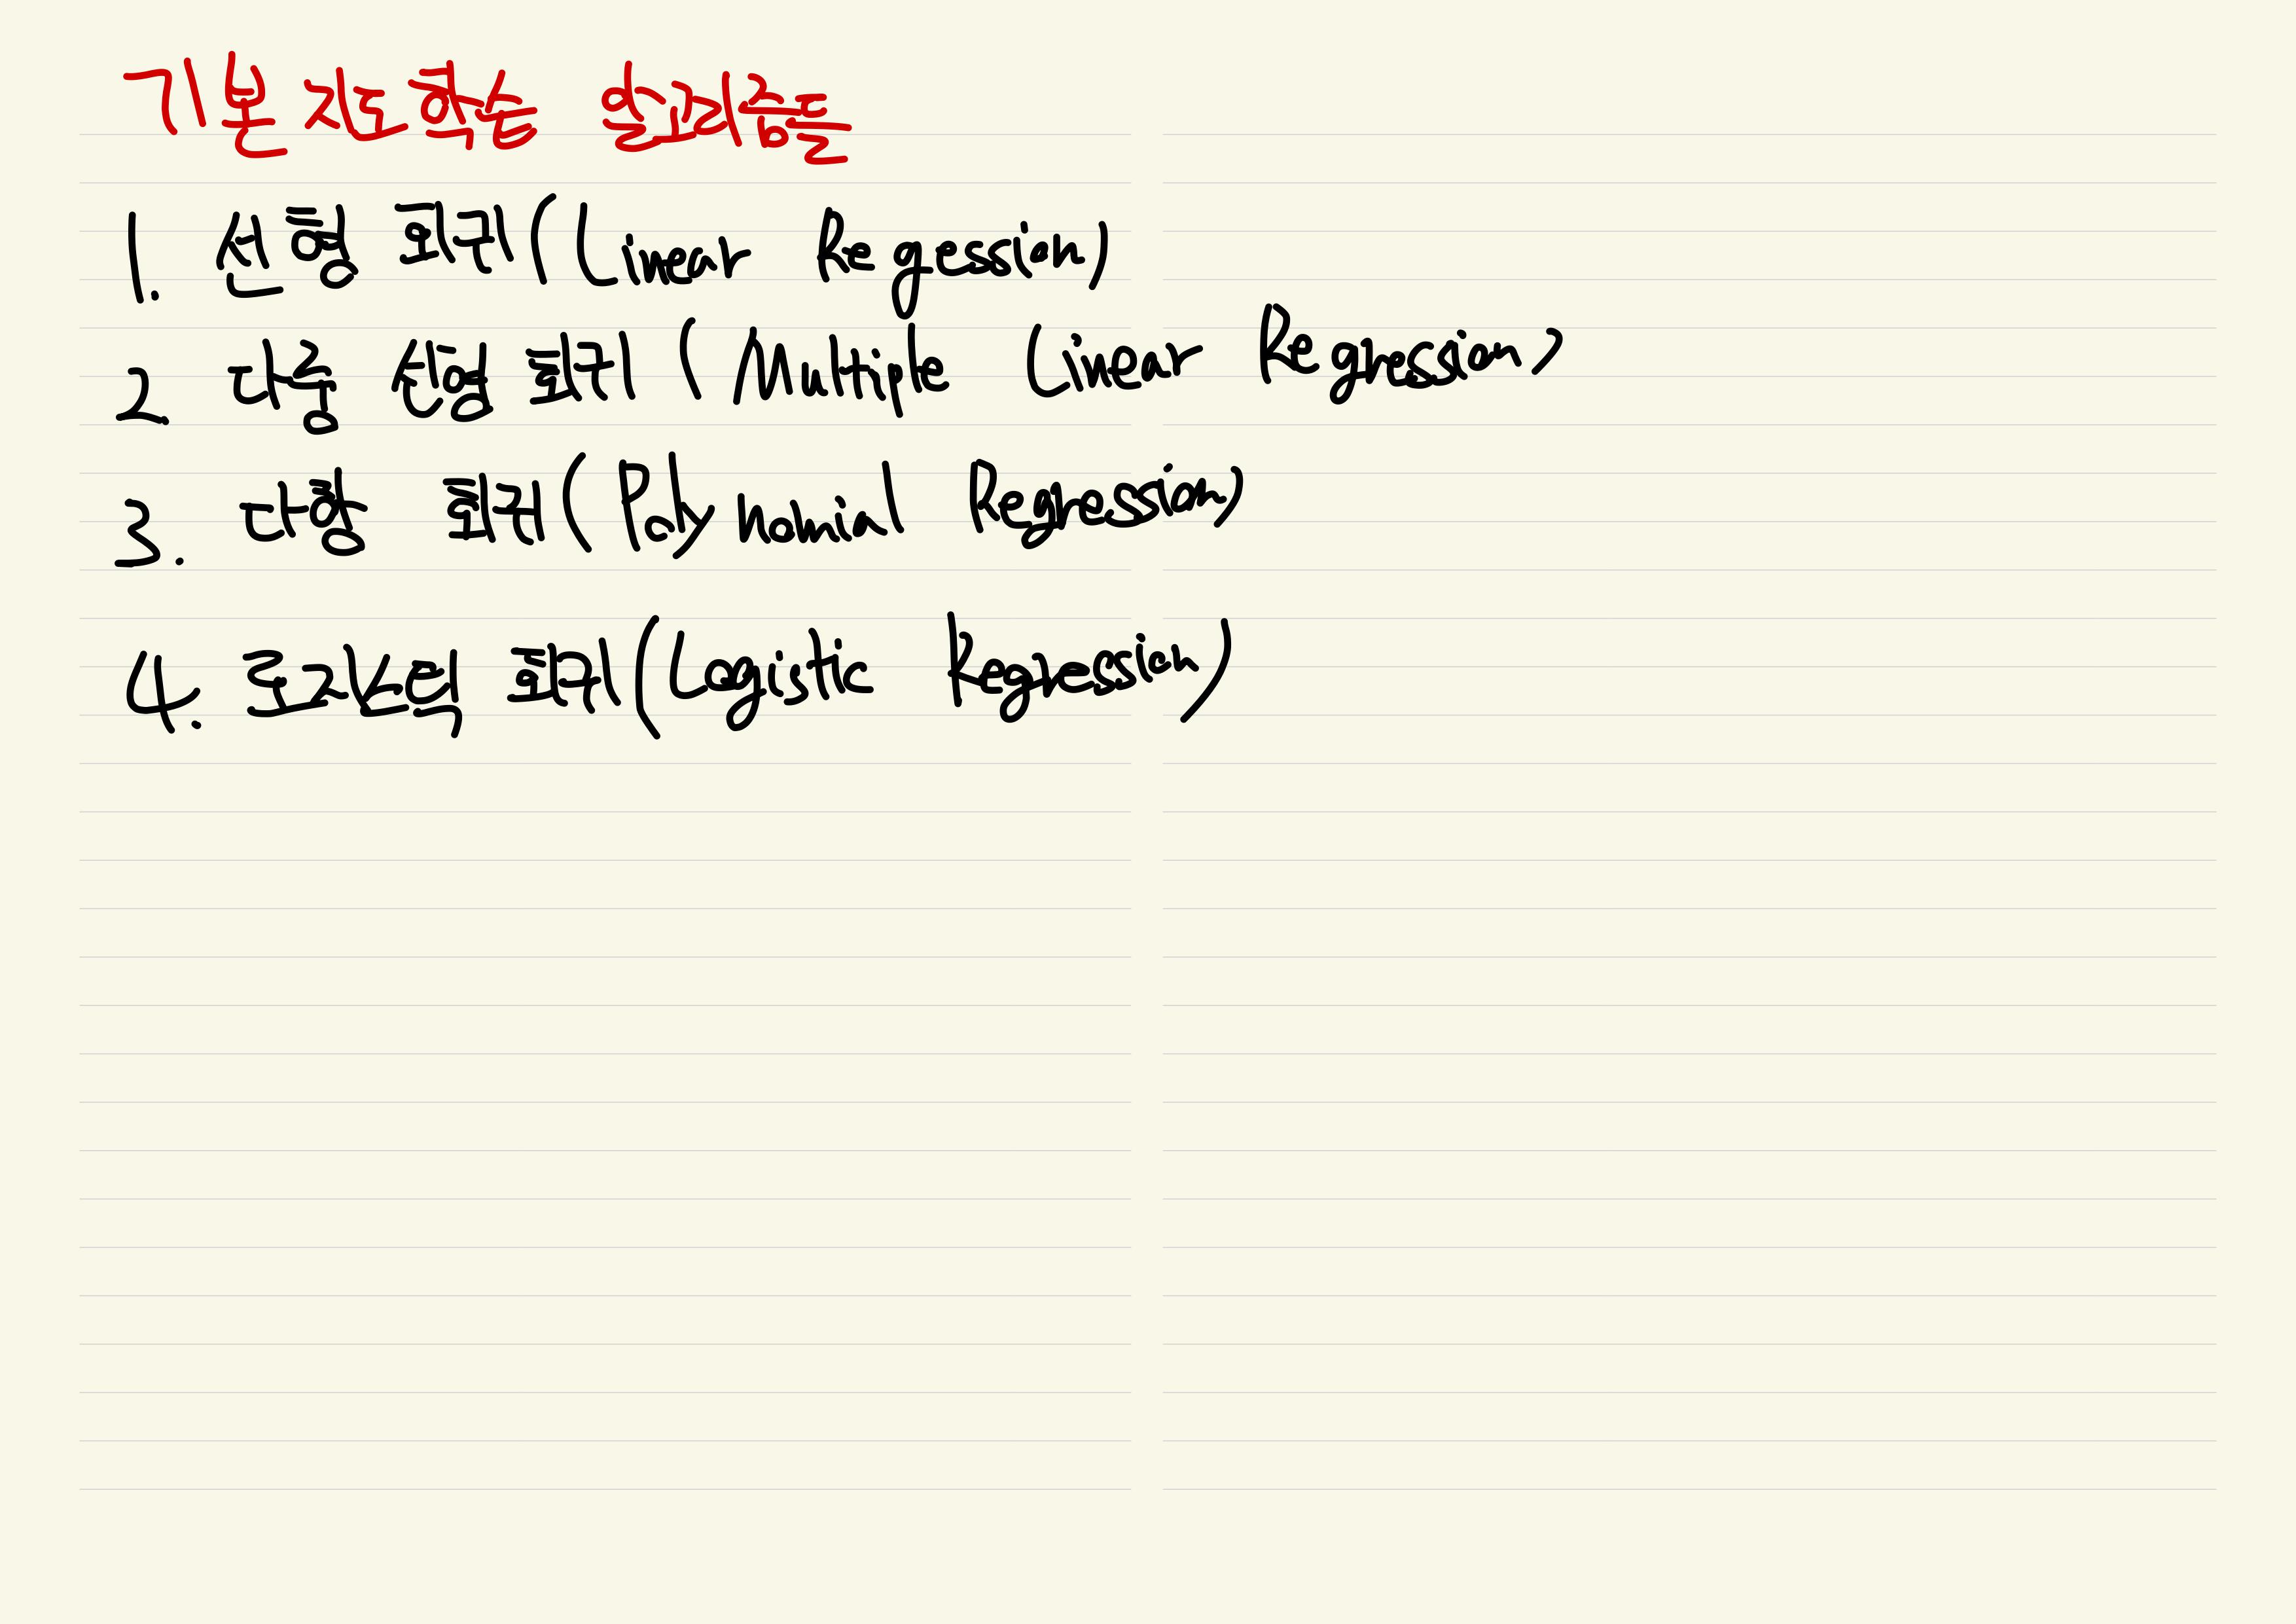 기본 지도학습 알고리즘들
1. 선형 회귀(Linear Regression)
2. 다중 선형 회귀(Multiple Linear Regression)
3. 다항 회귀(Polynomial Regression)
4. 로지스틱 회귀(Logistic Regression)